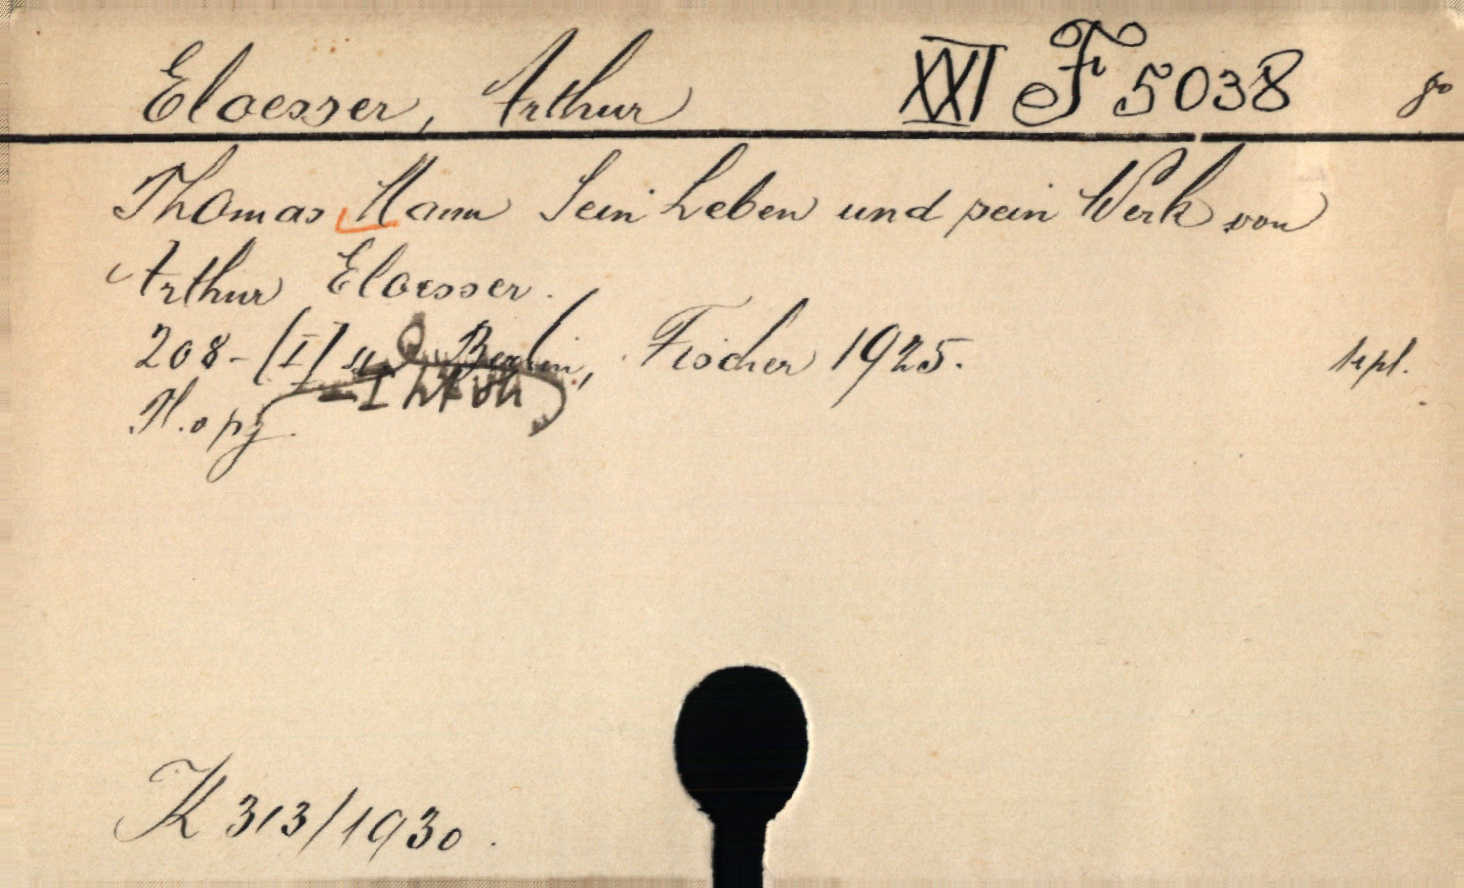 Eloesser, Arthur XXI F 5038 go
Thomas Mann Sein Leben und sein Werk von
Arthur Eloesser.
208-[I] Berlin, Fischer 1925. kpl.
K 313/1930.